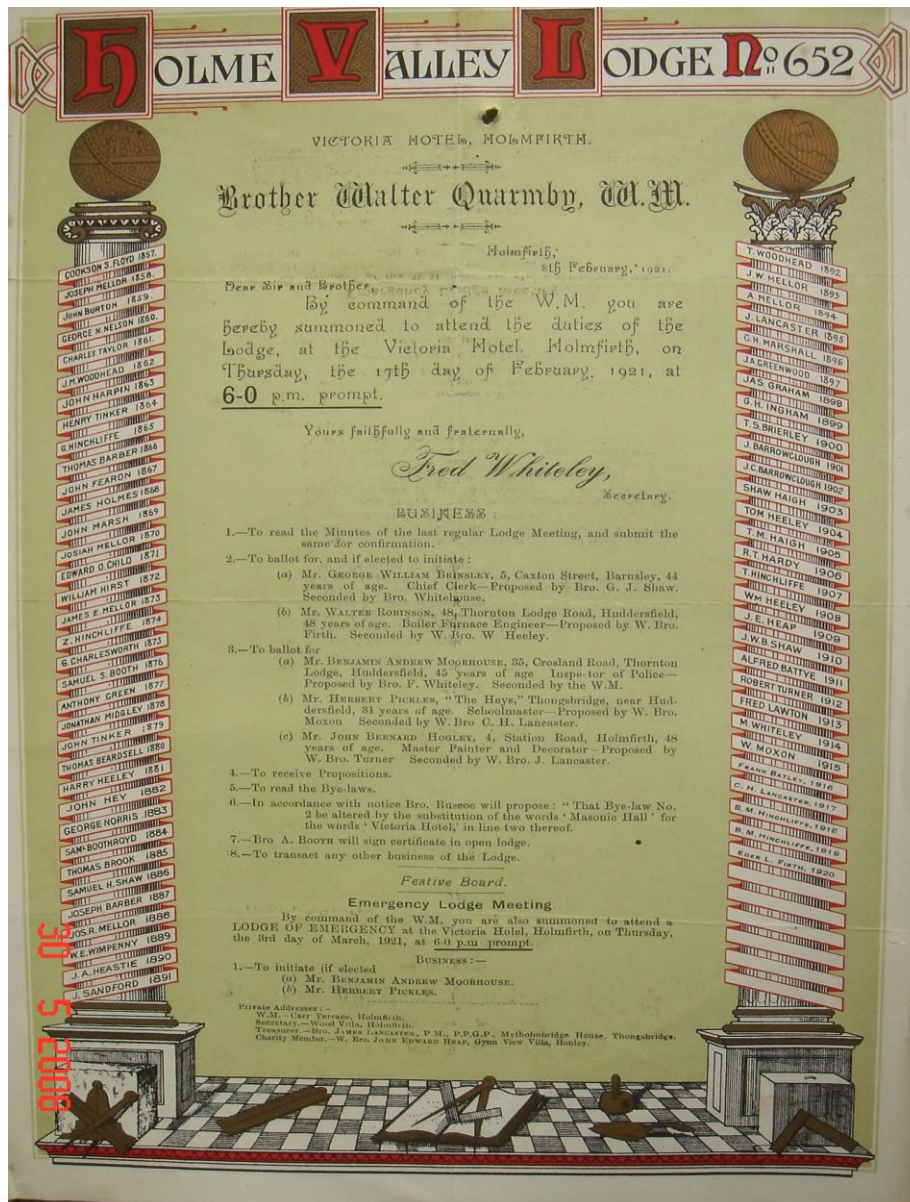 HOLME VALLEY LODGE No. 652
VICTORIA HOTEL, HOLMFIRTH.
Brother Walter Quarmby, W.M.
Holmfirth,
8th February, 1921.
Dear Sir and Brother,
By command of the W.M. you are
hereby summoned to attend the duties of the
Lodge, at the Victoria Hotel, Holmfirth, on
Thursday, the 17th day of February, 1921, at
6-0 p.m. prompt.
Yours faithfully and fraternally,
Fred Whiteley,
Secretary.
BUSINESS:
1.—To read the Minutes of the last regular Lodge Meeting, and submit the
same for confirmation.
2.—To ballot for, and if elected to initiate:
(a) Mr. GEORGE WILLIAM BRINSLEY, 5, Caxton Street, Barnsley, 44
years of age. Chief Clerk—Proposed by Bro. G. J. Shaw.
Seconded by Bro. Whitehouse.
(b) Mr. WALTER ROBINSON, 48, Thornton Lodge Road, Huddersfield,
48 years of age. Boiler Furnace Engineer—Proposed by W. Bro.
Firth. Seconded by W. Bro. W Heeley.
3.—To ballot for
(a) Mr. BENJAMIN ANDREW MOORHOUSE, 35, Crosland Road, Thornton
Lodge, Huddersfield, 45 years of age Inspe tor of Police—
Proposed by Bro. F. Whiteley. Seconded by the W.M.
(b) Mr. HERBERT PICKLES, "The Heys," Thongsbridge, near Hud-
dersfield, 31 years of age. Schoolmaster—Proposed by W. Bro.
Moxon Seconded by W. Bro C. H. Lancaster.
(c) Mr. JOHN BERNARD HOGLEY, 4, Station Road, Holmfirth, 48
years of age. Master Painter and Decorator—Proposed by
W. Bro. Turner Seconded by W. Bro. J. Lancaster.
4.—To receive Propositions.
5.—To read the Bye-laws.
6.—In accordance with notice Bro. Ruscoe will propose: "That Bye-law No.
2 be altered by the substitution of the words 'Masonic Hall' for
the words 'Victoria Hotel,' in line two thereof.
7.—Bro A. BOOTH will sign certificate in open lodge.
8.—To transact any other business of the Lodge.
Festive Board.
Emergency Lodge Meeting
By command of the W.M. you are also summoned to attend a
LODGE OF EMERGENCY at the Victoria Holel, Holmfirth, on Thursday,
the 3rd day of March, 1921, at 6-0 p.m prompt.
BUSINESS:—
1.—To initiate (if elected
(a) Mr. BENJAMIN ANDREW MOORHOUSE.
(b) Mr. HERBERT PICKLES.
Private Addresses:—
W.M.—Carr Terrace, Holmfirth.
Secretary.—Wood Villa, Holmfirth.
Treasurer.—Bro. JAMES LANCASTER, P M., P.P.G.P., Mytholmbridge House, Thongsbridge.
Charity Member.—W. Bro. JOHN EDWARD HEAP, Gynn View Villa, Honley.
COOKSON S. FLOYD 1857.
JOSEPH MELLOR 1858.
JOHN BURTON 1859.
GEORGE N. NELSON 1860.
CHARLES TAYLOR 1861.
J.M. WOODHEAD 1862
JOHN HARPIN 1863
HENRY TINKER 1864
G. HINCHLIFFE 1865
THOMAS BARBER 1866
JOHN FEARON 1867
JAMES HOLMES 1868
JOHN MARSH 1869
JOSIAH MELLOR 1870
EDWARD O. CHILD 1871
WILLIAM HIRST 1872
JAMES E. MELLOR 1873
Z. HINCHLIFFE 1874
G. CHARLESWORTH 1875
SAMUEL S. BOOTH 1876
ANTHONY GREEN 1877
JONATHAN MIDGLEY 1878
JOHN TINKER 1879
THOMAS BEARDSELL 1880
HARRY HEELEY 1881
JOHN HEY 1882
GEORGE NORRIS 1883
SAML BOOTHROYD 1884
THOMAS BROOK 1885
SAMUEL H. SHAW 1886
JOSEPH BARBER 1887
JOS. R. MELLOR 1888
W.E. WIMPENNY 1889
J.A. HEASTIE 1890
J. SANDFORD 1891
T. WOODHEAD 1892
J.W. MELLOR 1893
A MELLOR 1894
J. LANCASTER 1895
C.H. MARSHALL 1896
J.A. GREENWOOD 1897
JAS. GRAHAM 1898
G.H. INGHAM 1899
T.S. BRIERLEY 1900
J. BARROWCLOUGH 1901
J.C. BARROWCLOUGH 1902
SHAW HAIGH 1903
TOM HEELEY 1904
T.M. HAIGH 1905
R.T. HARDY 1906
T. HINCHLIFFE 1907
WM HEELEY 1908
J.E. HEAP 1909
J.W.B. SHAW 1910
ALFRED BATTYE 1911
ROBERT TURNER 1912
FRED LAWTON 1913
M. WHITELEY 1914
W. MOXON 1915
FRANK BATLEY, 1916
C. H. LANCASTER, 1917
B. M. HINCHLIFFE, 1918
B. M. HINCHLIFFE, 1919
EDGR L. FIRTH, 1920
30 5 2008